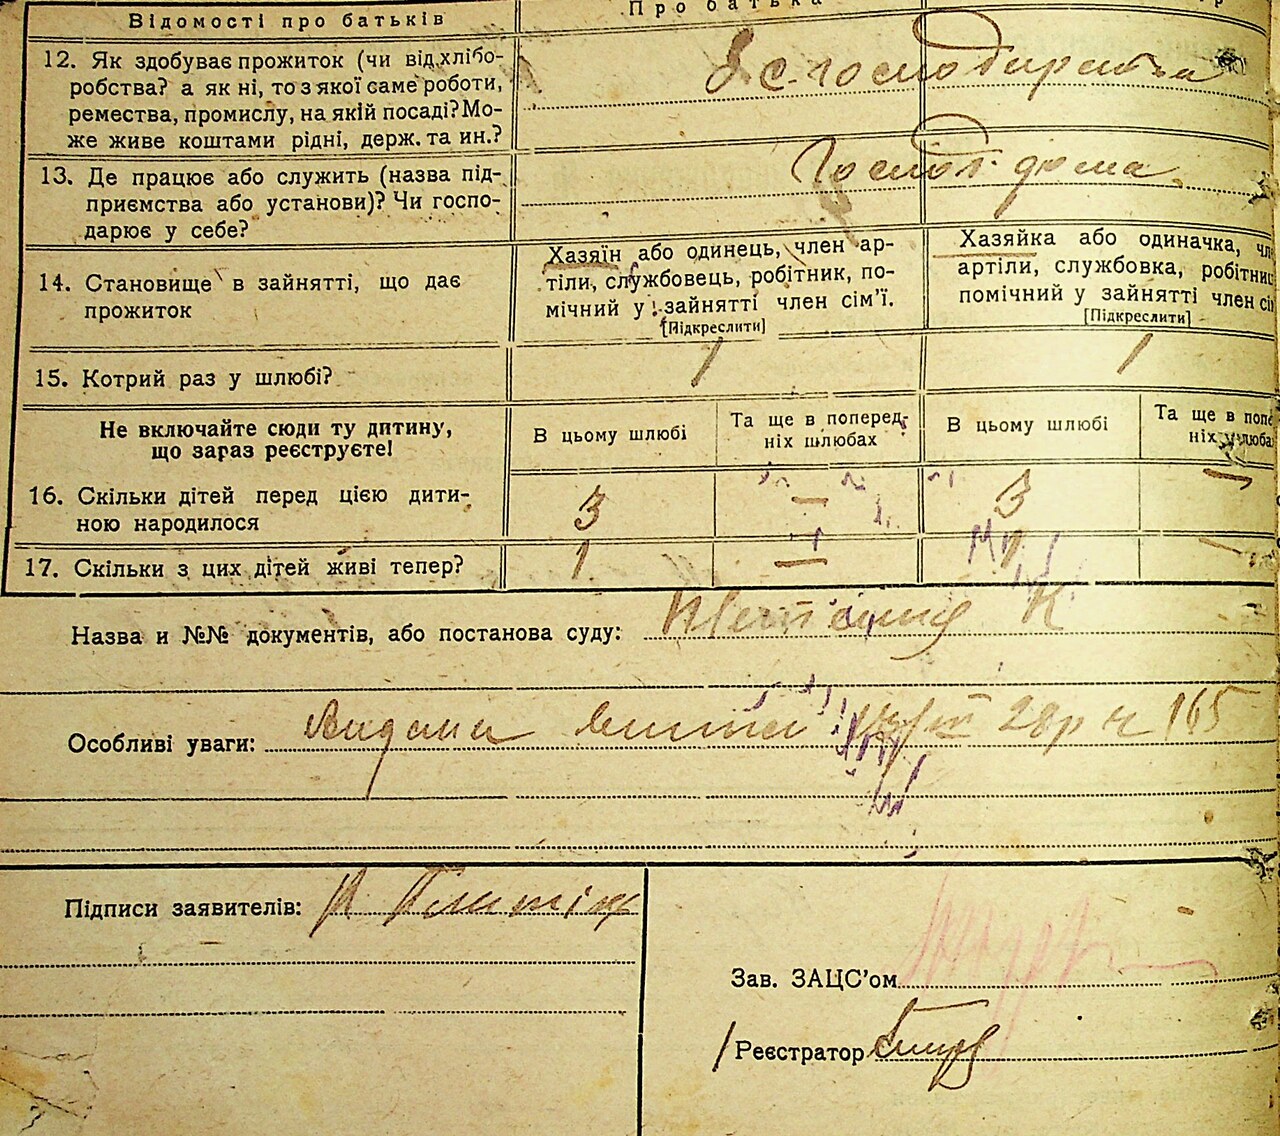 Відомості про батьків
Про батька
12. Як здобуває прожиток (чи від хлібо-
робства? а як ні, то з якої саме роботи,
ремества, промислу, на якій посаді? Мо-
же живе коштами рідні, держ. та ин.?
13. Де працює або служить (назва під-
приємства або установи)? Чи госпо-
дарює у себе?
дома
14. Становище в зайнятті, що дає
прожиток
Хазяїн або одинець, член ар-
тіли, службовець, робітник, по-
мічний у зайнятті член сім'ї.
[Підкреслити]
Хазяйка або одиначка, чл
артіли, службовка, робітниц
помічний у зайнятті член сім
[Підкреслити]
15. Котрий раз у шлюбі?
1
1
Не включайте сюди ту дитину,
що зараз реєструєте!
В цьому шлюбі
Та ще в поперед-
ніх шлюбах
В цьому шлюбі
Та ще в попе
ніх шлюба
16. Скільки дітей перед цією дити-
ною народилося
3
—
3
—
17. Скільки з цих дітей живі тепер?
1
—
1
—
Назва и №№ документів, або постанова суду:
Особливі уваги: Видана 28р ч 165
Підписи заявителів:
Зав. ЗАЦС'ом
Реєстратор